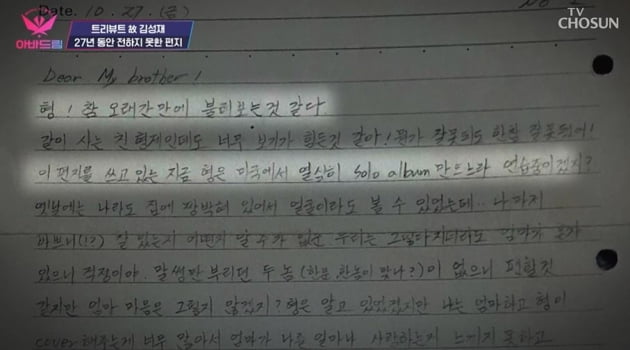 Date. 10. 27. (금)
트리뷰트 故 김성재
27년 동안 전하지 못한 편지
아바드림
TV CHOSUN
Dear My brother!
형! 참 오래간만에 불러보는것 같다.
같이 사는 친형제인데도 너무 보기가 힘든것 같아! 뭔가 잘못되도 한참 잘못되어!
이 편지를 쓰고 있는 지금 형은 미국에서 열심히 Solo album 만드느라 연습중이겠지?
옛날에는 나라도 집에 짱박혀 있어서 얼굴이라도 볼 수 있었는데.. 나까지
바쁘니(!?) 잘 있는지 어떤지 알 수가 없군. 우리는 그렇다치더라도 엄마가 혼자
있으니 걱정이야. 말썽만 부리던 두 놈(한분, 한놈이 맞나?)이 없으니 편할것
같지만 엄마 마음은 그렇지 않겠지? 형은 알고 있었겠지만 나는 엄마하고 형이
cover 해주는게 너무 많아서 엄마가 나를 얼마나 사랑하는지 느끼지 못하고